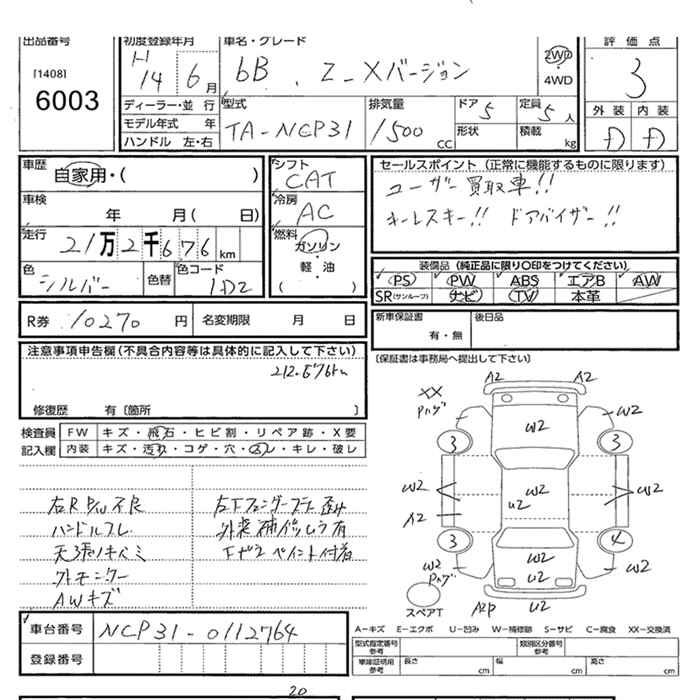 出品番号
[1408]
6003
初度登録年月
H
14 6月
車名・グレード
bB Z-Xバージョン
2WD
・
4WD
評価点
3
外装 内装
D D
ディーラー・並行
モデル年式 年
ハンドル 左・右
型式
TA-NCP31
排気量
1500cc
ドア 5
形状
定員 5人
積載 kg
車歴
自家用・( )
車検
年 月( 日)
走行
21万2千676km
色
シルバー
色替
色コード
1D2
シフト
CAT
冷房
AC
燃料
ガソリン
・
軽・油
( )
セールスポイント (正常に機能するものに限ります)
ユーザー買取車!!
キーレスキー!! ドアバイザー!!
装備品 (純正品に限り○印をつけてください)
PS PW ABS エアB AW
SR(サンルーフ) ナビ TV 本革
R券 10270円
名変期限 月 日
新車保証書
有・無
後日品
(保証書は事務局へ提出して下さい)
注意事項申告欄(不具合内容等は具体的に記入して下さい)
212.676km
修復歴 有〔箇所 〕
検査員
記入欄
FW キズ・飛石・ヒビ割・リペア跡・X要
内装 キズ・汚れ・コゲ・穴・スレ・キレ・破レ
右R P/W不良
ハンドルスレ
天張りキバミ
外モニター
AWキズ
外装補修ムラ有
ペイント付着
A2 A2
XX
Pハゲ
W2
W2
3 3
W2 W2 W2
A2 U2
3 4
W2
Pハゲ
W2
U2
W2
スペアT
A2P U2
A-キズ E-エクボ U-凹み W-補修跡 S-サビ C-腐食 XX-交換済
車台番号 NCP31-0112764
登録番号
型式指定番号
参考
類別区分番号
参考
車庫証明用
参考
長さ cm
幅 cm
高さ cm
20